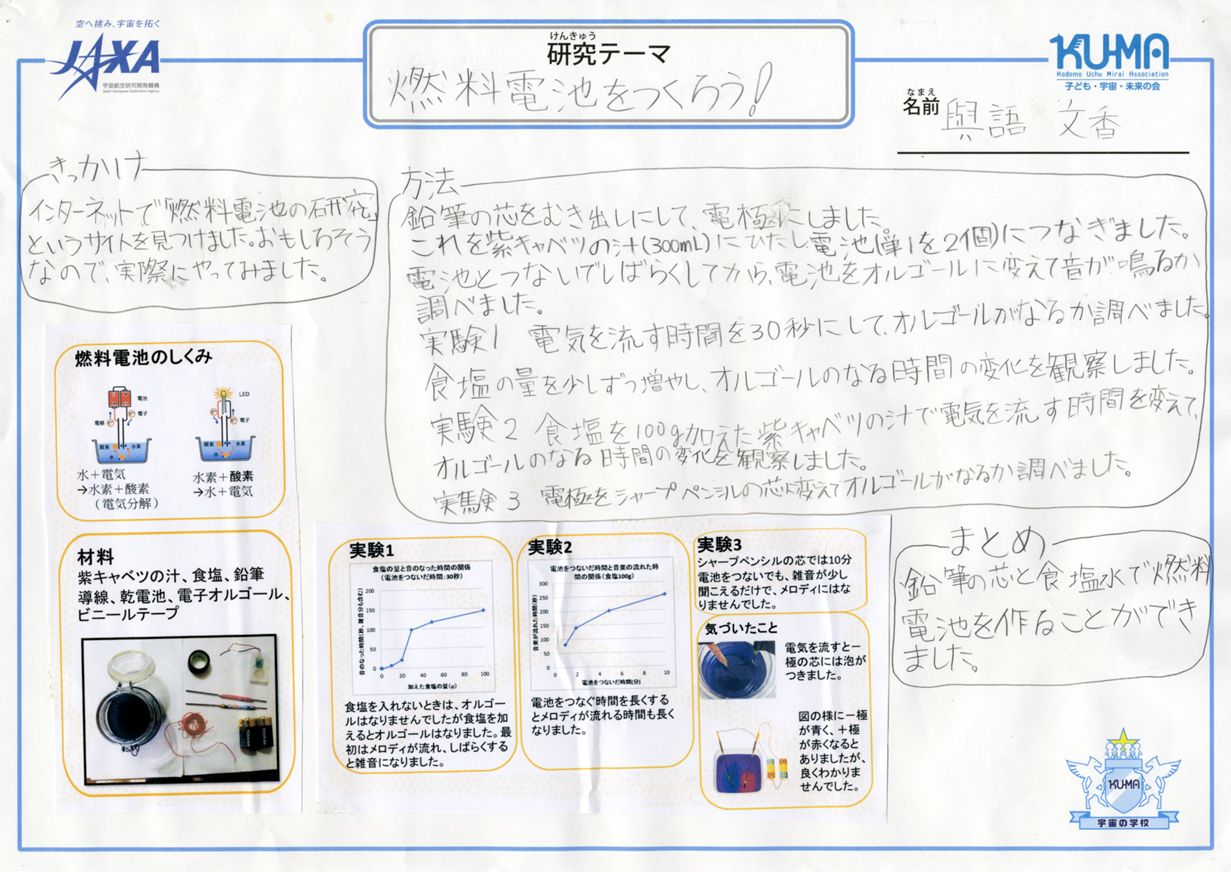 空へ挑み、宇宙を拓く
JAXA
宇宙航空研究開発機構
Japan Aerospace Exploration Agency
けんきゅう
研究テーマ
燃料電池をつくろう!
KU-MA
Kodomo Uchu Mirai Association
子ども・宇宙・未来の会
なまえ
名前 與語 文香
きっかけ
インターネットで「燃料電池の研究」
というサイトを見つけました。おもしろそう
なので、実際にやってみました。
方法
鉛筆の芯をむき出しにして、電極にしました。
これを紫キャベツの汁(300mL)にひたし電池(単1を2個)につなぎました。
電池とつないでしばらくしてから、電池をオルゴールに変えて音が鳴るか
調べました。
実験1 電気を流す時間を30秒にして、オルゴールがなるか調べました。
食塩の量を少しずつ増やし、オルゴールのなる時間の変化を観察しました。
実験2 食塩を100g加えた紫キャベツの汁で電気を流す時間を変えて、
オルゴールのなる時間の変化を観察しました。
実験3 電極をシャープペンシルの芯に変えてオルゴールがなるか調べました。
燃料電池のしくみ
電池
電子
電極
酸素
水素
水
LED
電子
酸素
水素
水
水+電気
→水素+酸素
(電気分解)
水素+酸素
→水+電気
材料
紫キャベツの汁、食塩、鉛筆
導線、乾電池、電子オルゴール、
ビニールテープ
実験1
食塩の量と音のなった時間の関係
(電池をつないだ時間:30秒)
音のなった時間(秒、雑音も含む)
200
150
100
50
0
0 20 40 60 80 100
加えた食塩の量(g)
食塩を入れないときは、オルゴ
ールはなりませんでしたが食塩を加
えるとオルゴールはなりました。最
初はメロディが流れ、しばらくする
と雑音になりました。
実験2
電池をつないだ時間と音楽の流れた時
間の関係(食塩100g)
音楽が流れた時間(秒)
300
250
200
150
100
50
0
0 2 4 6 8 10
電池をつないだ時間(分)
電池をつなぐ時間を長くする
とメロディが流れる時間も長く
なりました。
実験3
シャープペンシルの芯では10分
電池をつないでも、雑音が少し
聞こえるだけで、メロディにはな
りませんでした。
気づいたこと
電気を流すと-
極の芯には泡が
つきました。
図の様に-極
が青く、+極
が赤くなると
ありましたが、
良くわかりま
せんでした。
まとめ
鉛筆の芯と食塩水で燃料
電池を作ることができ
ました。
KUMA
宇宙の学校